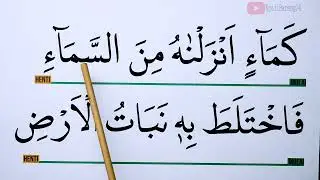 كَمَآءٍ اَنْزَلْنٰهُ مِنَ السَّمَآءِ
HENTI
MULAI
فَاخْتَلَطَ بِهٖ نَبَاتُ الْاَرْضِ
HENTI